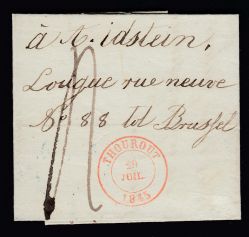 à A. idstein,
Longue rue neuve
No 88 tot Brussel
THOUROUT
29
JUIL.
1845